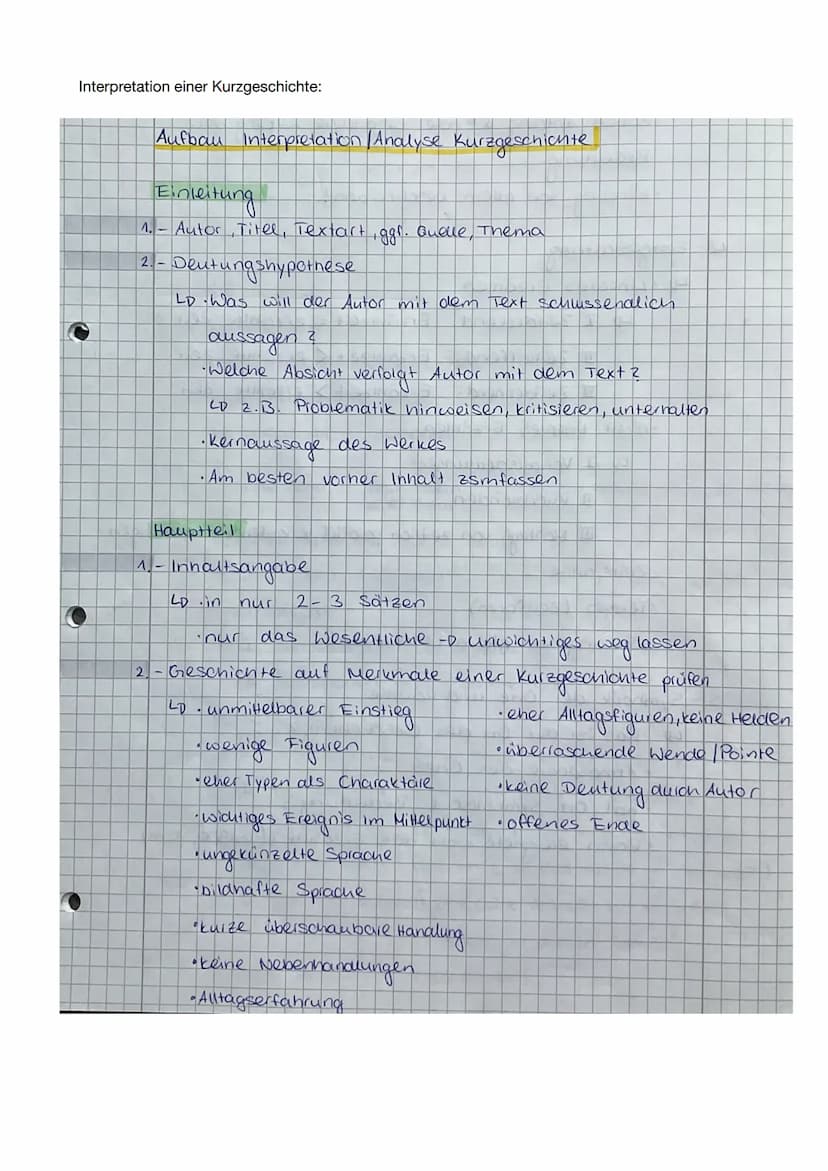 Interpretation einer Kurzgeschichte:
Aufbau Interpretation/Analyse Kurzgeschichte
Einleitung
1. - Autor, Titel, Textart, ggf. Quelle, Thema
2. - Deutungshypothese
↳ · Was will der Autor mit dem Text schlussendlich
aussagen?
· Welche Absicht verfolgt Autor mit dem Text?
↳ z.B. Problematik hinweisen, kritisieren, unterhalten
· Kernaussage des Werkes
· Am besten vorher Inhalt zsmfassen
Hauptteil
1. - Inhaltsangabe
↳ · in nur 2-3 Sätzen
· nur das Wesentliche → unwichtiges weg lassen
2. - Geschichte auf Merkmale einer Kurzgeschichte prüfen
↳ · unmittelbarer Einstieg
· wenige Figuren
· eher Typen als Charaktäre
· wichtiges Ereignis im Mittelpunkt
· ungekünzelte Sprache
· bildhafte Sprache
· kurze überschaubare Handlung
· keine Nebenhandlungen
· Alltagserfahrung
· eher Alltagsfiguren, keine Helden
· überraschende Wende/Pointe
· keine Deutung durch Autor
· offenes Ende